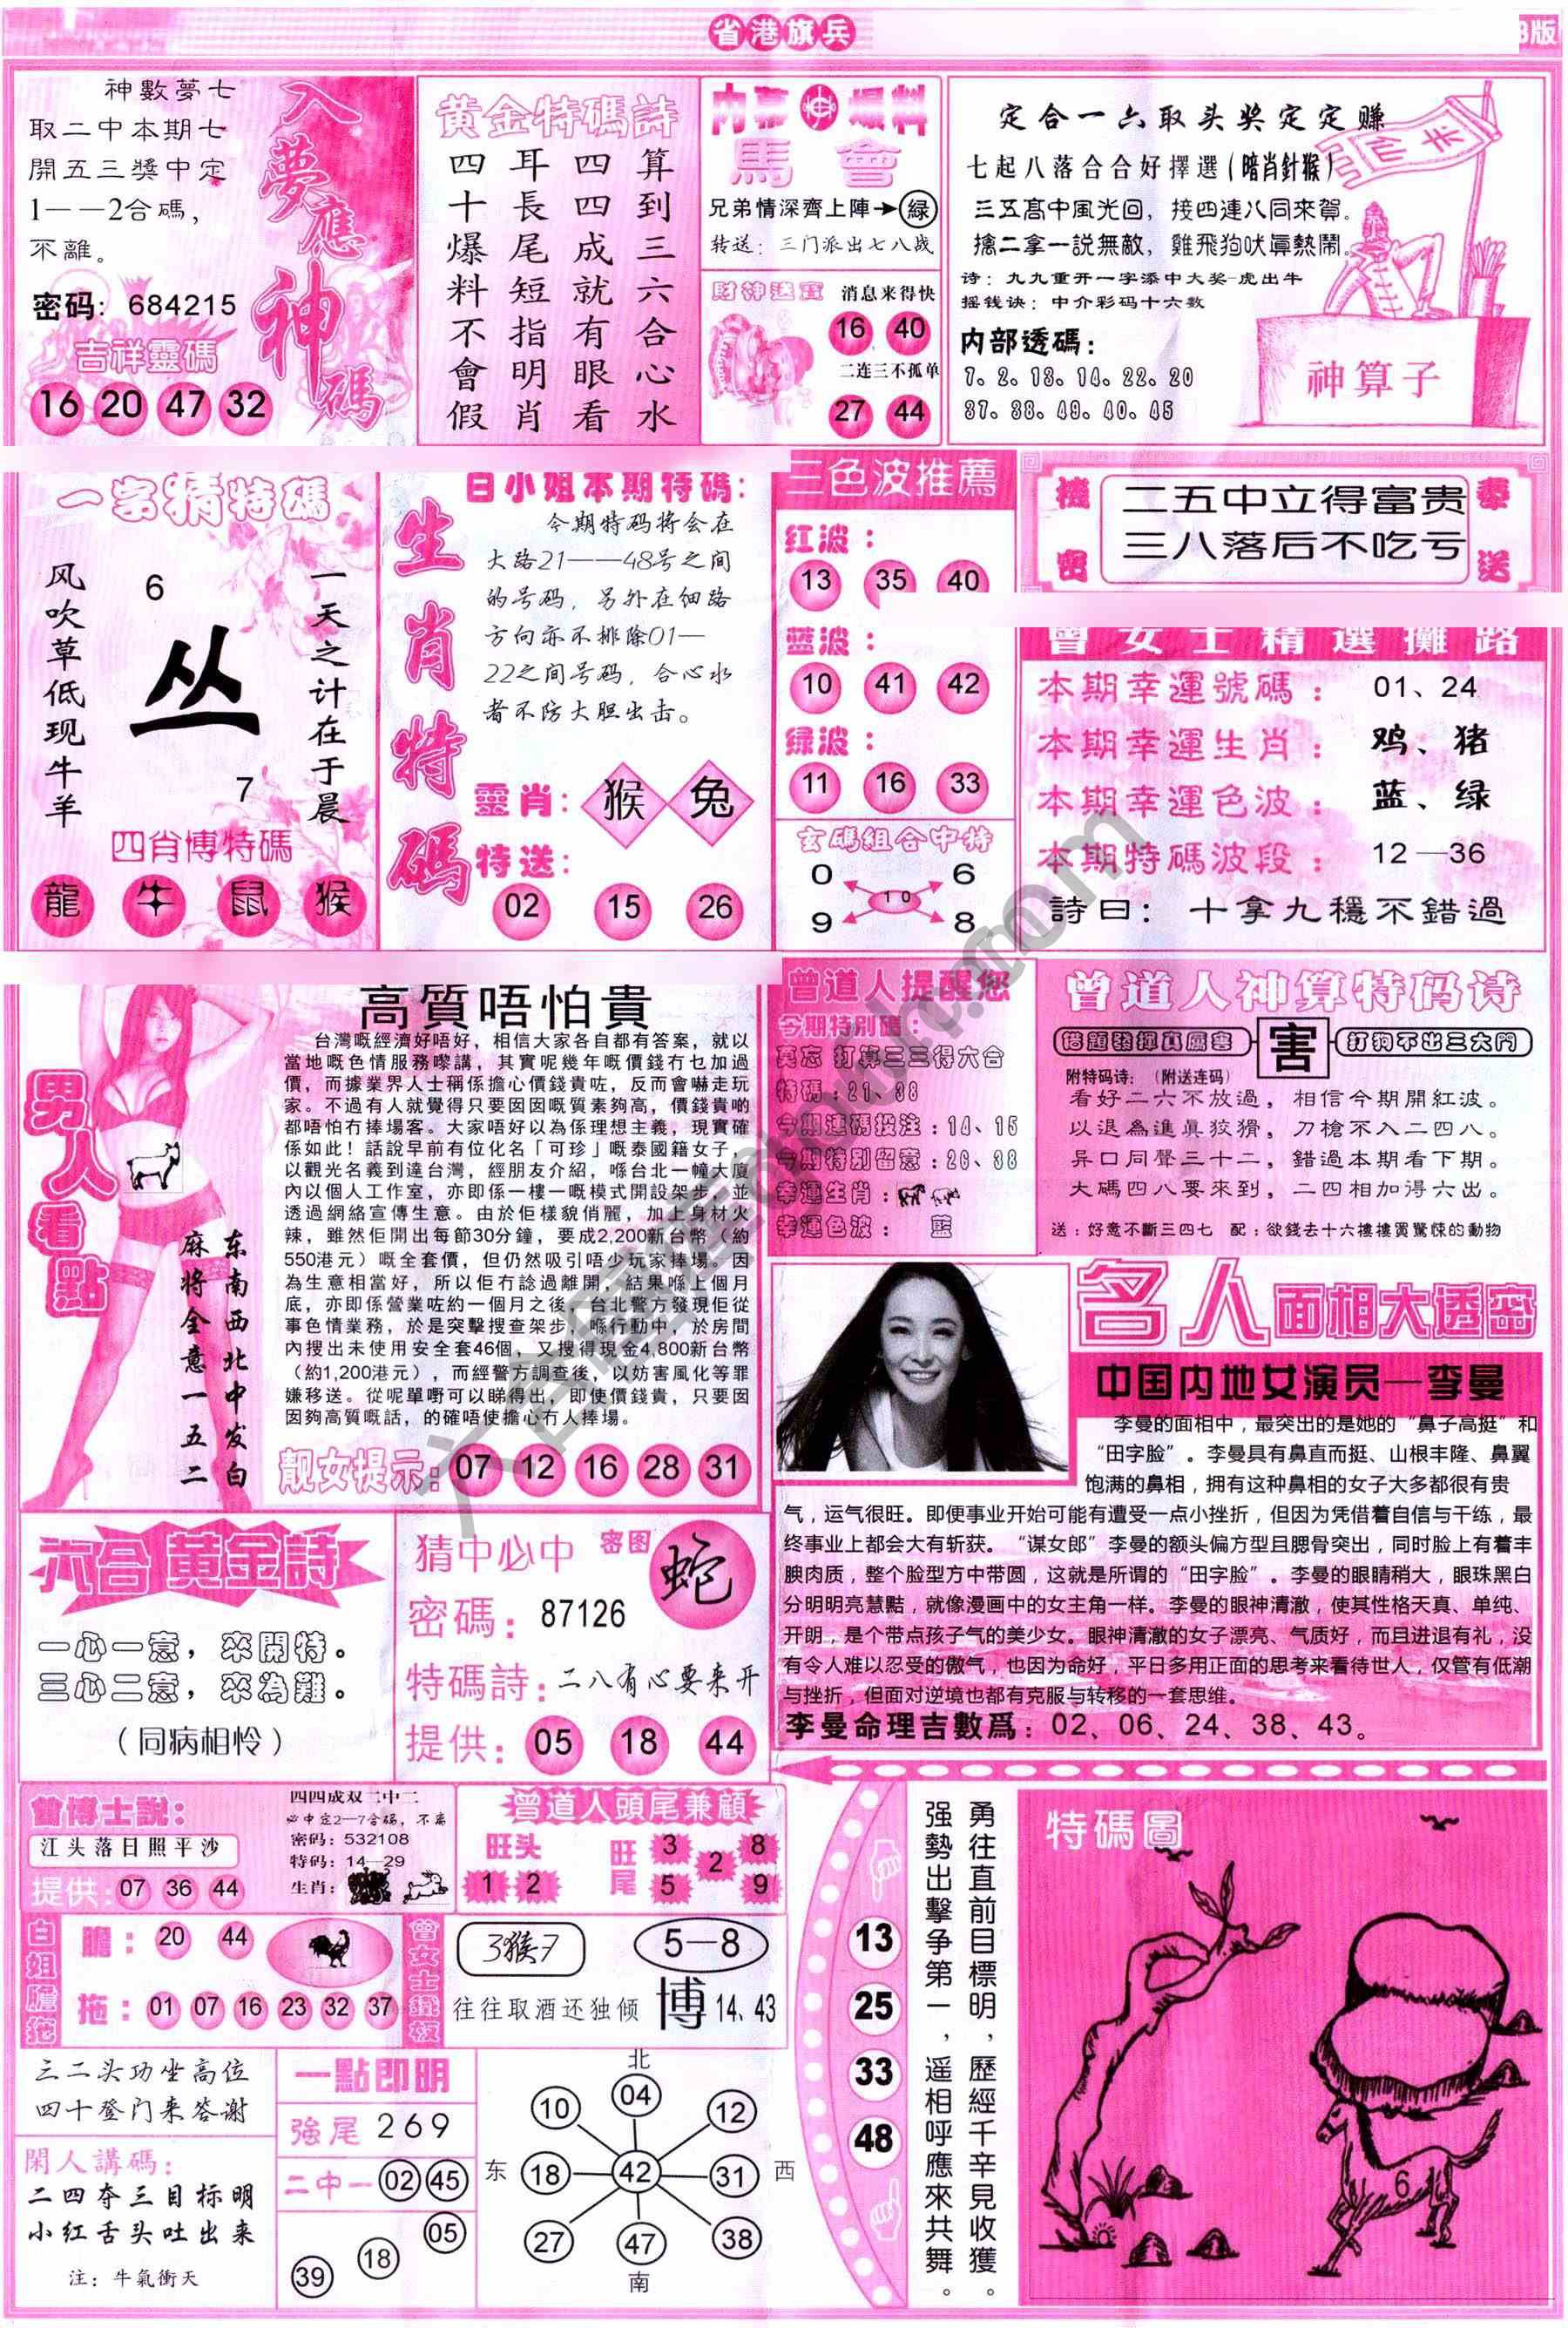 省港旗兵
B版
入夢應神碼
神數夢七
取二中本期七
開五三獎中定
1——2合碼，
不離。
密码：684215
吉祥靈碼
16 20 47 32
黄金特碼詩
四耳四算
十長四到
爆尾成三
料短就六
不指有合
會明眼心
假肖看水
内幕爆料
馬會
兄弟情深齊上陣→綠
转送：三门派出七八战
財神送寶
消息来得快
16 40
二连三不孤单
27 44
定合一六取头奖定定赚
七起八落合合好擇選（暗肖針猴）
三五髙中風光回，接四連八同來賀。
擒二拿一説無敵，雞飛狗吠眞熱鬧。
诗：九九重开一字添中大奖-虎出牛
摇钱诀：中介彩码十六数
内部透碼：
7、2、13、14、22、20
37、38、49、40、45
神算子
一字猜特碼
风吹草低现牛羊
6
丛
7
一天之计在于晨
四肖博特碼
龍 牛 鼠 猴
生肖特碼
白小姐本期特碼：
今期特码将会在
大路21——48号之间
的号码，另外在细路
方向亦不排除01—
22之间号码，合心水
者不防大胆出击。
靈肖：猴 兔
特送：
02 15 26
三色波推薦
红波：
13 35 40
蓝波：
10 41 42
绿波：
11 16 33
玄碼組合中特
0 6
10
9 8
機密奉送
二五中立得富贵
三八落后不吃亏
曾女士精選攤路
本期幸運號碼：01、24
本期幸運生肖：鸡、猪
本期幸運色波：蓝、绿
本期特碼波段：12—36
詩曰：十拿九穩不錯過
男人看點
东南西北中发白
麻将全意一五二
高質唔怕貴
台灣嘅經濟好唔好，相信大家各自都有答案，就以
當地嘅色情服務嚟講，其實呢幾年嘅價錢冇乜加過
價，而據業界人士稱係擔心價錢貴咗，反而會嚇走玩
家。不過有人就覺得只要囡囡嘅質素夠高，價錢貴啲
都唔怕冇捧場客。大家唔好以為係理想主義，現實確
係如此！話說早前有位化名「可珍」嘅泰國籍女子，
以觀光名義到達台灣，經朋友介紹，喺台北一幢大廈
內以個人工作室，亦即係一樓一嘅模式開設架步，並
透過網絡宣傳生意。由於佢樣貌俏麗，加上身材火
辣，雖然佢開出每節30分鐘，要成2,200新台幣（約
550港元）嘅全套價，但仍然吸引唔少玩家捧場。因
為生意相當好，所以佢冇諗過離開，結果喺上個月
底，亦即係營業咗約一個月之後，台北警方發現佢從
事色情業務，於是突擊搜查架步，喺行動中，於房間
內搜出未使用安全套46個，又搜得現金4,800新台幣
（約1,200港元），而經警方調查後，以妨害風化等罪
嫌移送。從呢單嘢可以睇得出，即使價錢貴，只要囡
囡夠高質嘅話，的確唔使擔心冇人捧場。
靓女提示：07 12 16 28 31
曾道人提醒您
今期特别碼：
莫忘 打算三三得六合
特碼：21、38
今期連碼投注：14、15
今期特别留意：28、38
幸運生肖：
幸運色波： 蓝
曾道人神算特码诗
借題發揮真厲害 害 打狗不出三大門
附特码诗：（附送连码）
看好二六不放過，相信今期開紅波。
以退為進眞狡猾，刀槍不入二四八。
异口同聲三十二，錯過本期看下期。
大碼四八要來到，二四相加得六出。
送：好意不斷三四七 配：欲錢去十六樓樓買驚悚的動物
名人面相大透密
中国内地女演员—李曼
李曼的面相中，最突出的是她的“鼻子高挺”和
“田字脸”。李曼具有鼻直而挺、山根丰隆、鼻翼
饱满的鼻相，拥有这种鼻相的女子大多都很有贵
气，运气很旺。即便事业开始可能有遭受一点小挫折，但因为凭借着自信与干练，最
终事业上都会大有斩获。“谋女郎”李曼的额头偏方型且腮骨突出，同时脸上有着丰
腴肉质，整个脸型方中带圆，这就是所谓的“田字脸”。李曼的眼睛稍大，眼珠黑白
分明明亮慧黠，就像漫画中的女主角一样。李曼的眼神清澈，使其性格天真、单纯、
开朗，是个带点孩子气的美少女。眼神清澈的女子漂亮、气质好，而且进退有礼，没
有令人难以忍受的傲气，也因为命好，平日多用正面的思考来看待世人，仅管有低潮
与挫折，但面对逆境也都有克服与转移的一套思维。
李曼命理吉數爲：02、06、24、38、43。
六合黄金詩
一心一意，來開特。
三心二意，來為難。
（同病相怜）
猜中必中 密图 蛇
密碼：87126
特碼詩：二八有心要来开
提供：05 18 44
曾博士說：
江头落日照平沙
提供：07 36 44
四四成双二中二
必中定2—7合码，不离
密码：532108
特码：14—29
生肖：
曾道人頭尾兼顧
旺头
1 2
旺尾
3 8 2 5 9
白姐膽拖
膽：20 44
拖：01 07 16 23 32 37
3猴7
5—8
往往取酒还独倾 博 14、43
三二头功坐高位
四十登门来答谢
閑人講碼：
二四夺三目标明
小红舌头吐出来
注：牛氣衝天
一點即明
強尾 269
二中一 02 45
05
18
39
北
10 04 12
东 18 42 31 西
27 47 38
南
13
25
33
48
勇往直前目標明，歷經千辛見收獲。
强勢出擊争第一，遥相呼應來共舞。
特碼圖
6